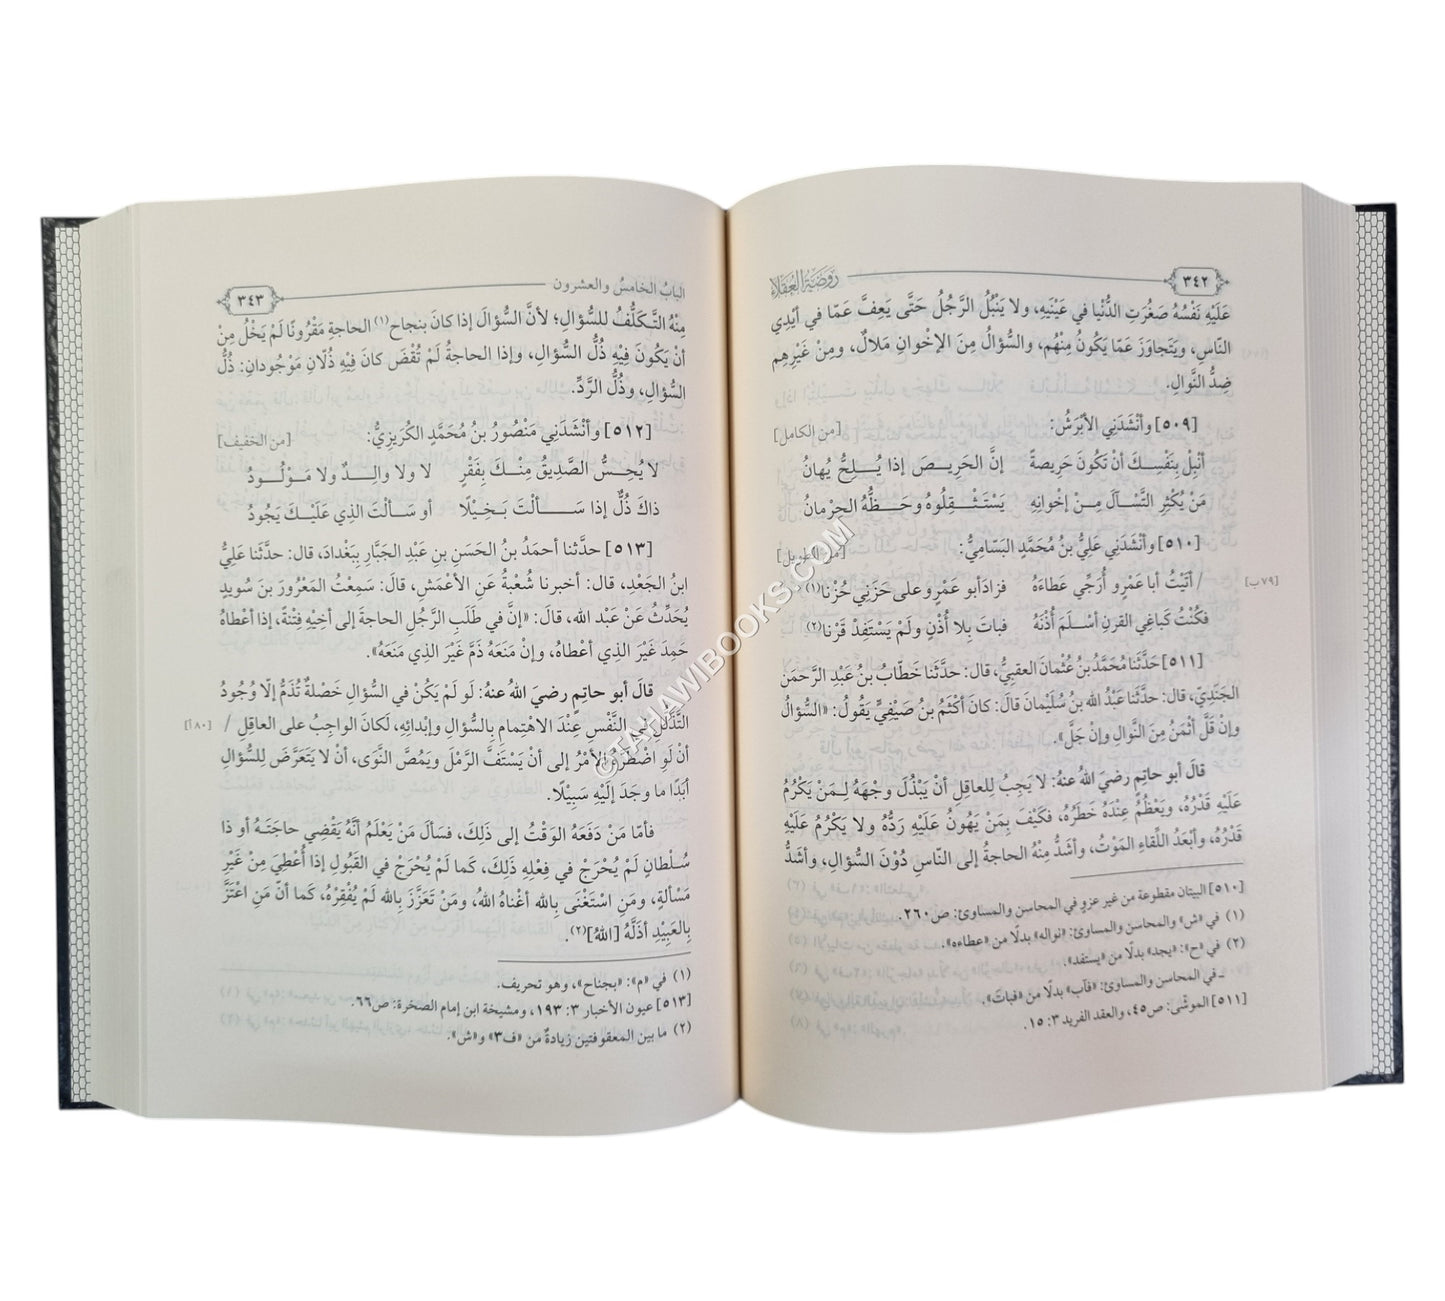 ٣٤٢ روضة العقلاء
عَلَيْهِ نَفْسُهُ صَغُرَتِ الدُّنْيا في عَيْنَيهِ، ولا يَنْبُلُ الرَّجُلُ حَتَّى يَعِفَّ عَمّا في أيْدِي
النّاسِ، ويَتَجاوَزَ عَمّا يَكُونُ مِنْهُم، والسُّؤالُ مِنَ الإخْوانِ مَلالٌ، ومِنْ غَيْرِهِم
ضِدُّ النَّوالِ.
[٥٠٩] وأنْشَدَنِي الأبْرَشُ: [من الكامل]
أنْبِلْ بِنَفْسِكَ أنْ تَكُونَ حَرِيصةً إنَّ الحَرِيصَ إذا يُلِحُّ يُهانُ
مَنْ يُكْثِرِ التَّسْآلَ مِنْ إخْوانِهِ يَسْتَثْقِلُوهُ وحَظُّهُ الحِرْمانُ
[٥١٠] وأنْشَدَنِي عَلِيُّ بنُ مُحَمَّدٍ البَسّامِيُّ: [من الطويل]
[٧٩ب] / أتَيْتُ أبا عَمْرٍو أُرَجِّي عَطاءَهُ فزادَ أبو عَمْرٍو على حَزَنِي حُزْنا(١)
فكُنْتُ كَباغِي القَرنِ أسْلَمَ أُذْنَهُ فباتَ بِلا أُذْنٍ ولَمْ يَسْتَفِدْ قَرْنا(٢)
[٥١١] حَدَّثَنا مُحَمَّدُ بنُ عُثْمانَ العقبيُّ، قال: حَدَّثَنا خَطّابُ بنُ عَبْدِ الرَّحمَنِ
الجَنَدِيُّ، قال: حدَّثَنا عَبْدُ الله بنُ سُلَيْمانَ قالَ: كانَ أكْثَمُ بنُ صَيْفِيٍّ يَقُولُ: «السُّؤالُ
وإنْ قَلَّ أثْمَنُ مِنَ النَّوالِ وإنْ جَلَّ».
قالَ أبو حاتِمٍ رضيَ اللهُ عنهُ: لا يَجِبُ لِلعاقِلِ أنْ يَبْذُلَ وجْهَهُ لِمَنْ يَكْرُمُ
عَلَيْهِ قَدْرُهُ، ويَعْظُمُ عِنْدَهُ خَطَرُهُ، فكَيْفَ بِمَنْ يَهُونُ عَلَيْهِ رَدُّهُ ولا يَكْرُمُ عَلَيْهِ
قَدْرُهُ، وأبْعَدُ اللِّقاءِ المَوْتُ، وأشَدُّ مِنْهُ الحاجةُ إلى النّاسِ دُوْنَ السُّؤالِ، وأشَدُّ
[٥١٠] البيتان مقطوعة من غير عزوٍ في المحاسن والمساوئ: ص٢٦٠.
(١) في «ش» والمحاسن والمساوئ: «نواله» بدلًا من «عطاءه».
(٢) في «ح»: «يجد» بدلًا من «يستفد».
ـ في المحاسن والمساوئ: «فآب» بدلًا من «فباتَ».
[٥١١] الموشّى: ص٤٥، والعقد الفريد ٣: ١٥.
البابُ الخامسُ والعشرون ٣٤٣
مِنْهُ التَّكَلُّفُ للسُّؤالِ؛ لأنَّ السُّؤالَ إذا كانَ بنجاحِ(١) الحاجةِ مَقْرُونًا لَمْ يَخْلُ مِنْ
أنْ يَكُونَ فِيْهِ ذُلُّ السُّؤالِ، وإذا الحاجةُ لَمْ تُقْضَ كانَ فِيْهِ ذُلّانِ مَوْجُودانِ: ذُلُّ
السُّؤالِ، وذُلُّ الرَّدِّ.
[٥١٢] وأنْشَدَنِي مَنْصُورُ بنُ مُحَمَّدٍ الكُرَيزِيُّ: [من الخفيف]
لا يُحِسُّ الصَّدِيقُ مِنْكَ بِفَقْرٍ لا ولا والِدٌ ولا مَوْلُودُ
ذاكَ ذُلٌّ إذا سَألْتَ بَخِيْلًا أو سَألْتَ الذِي عَلَيْكَ يَجُودُ
[٥١٣] حدَّثنا أحمَدُ بنُ الحَسَنِ بنِ عَبدِ الجَبَّارِ بِبَغْدادَ، قال: حدَّثَنا عَلِيُّ
ابنُ الجَعْدِ، قال: أخبرنا شُعْبةُ عَنِ الأعْمَشِ، قالَ: سَمِعْتُ المَعْرُورَ بنَ سُويدٍ
يُحَدِّثُ عَنْ عَبْد الله، قالَ: «إنَّ في طَلَبِ الرَّجُلِ الحاجةَ إلى أخِيْهِ فِتْنةً، إذا أعْطاهُ
حَمِدَ غَيْرَ الذِي أعْطاهُ، وإنْ مَنَعَهُ ذَمَّ غَيْرَ الذِي مَنَعَهُ».
قالَ أبو حاتِمٍ رضيَ اللهُ عنهُ: لَو لَمْ يَكُنْ في السُّؤالِ خَصْلةٌ تُذَمُّ إلّا وُجُودُ
التَّذَلُّلِ في النَّفْسِ عِنْدَ الاهْتِمامِ بِالسُّؤالِ وإبْدائِهِ، لَكانَ الواجِبُ على العاقِلِ / [٨٠أ]
أنْ لَوِ اضْطَرَّهُ الأمْرُ إلى أنْ يَسْتَفَّ الرَّمْلَ ويَمُصَّ النَّوَى، أنْ لا يَتَعَرَّضَ لِلسُّؤالِ
أبَدًا ما وجَدَ إلَيْهِ سَبِيْلًا.
فأمّا مَنْ دَفَعَهُ الوَقْتُ إلى ذَلِكَ، فسَألَ مَنْ يَعْلَمُ أنَّهُ يَقْضِي حاجَتَهُ أو ذا
سُلْطانٍ لَمْ يُحْرَجْ في فِعْلِهِ ذَلِكَ، كَما لَمْ يُحْرَجْ في القَبُولِ إذا أُعْطِيَ مِنْ غَيْرِ
مَسْألةٍ، ومَنِ اسْتَغْنَى بِالله أغْناهُ اللهُ، ومَنْ تَعَزَّزَ بِالله لَمْ يُفْقِرْهُ، كَما أنَّ مَنِ اعْتَزَّ
بِالعَبِيْدِ أذَلَّهُ [اللهُ](٢).
(١) في «م»: «بجناح»، وهو تحريف.
[٥١٣] عيون الأخبار ٣: ١٩٣، ومشيخة ابن إمام الصخرة: ص٦٦.
(٢) ما بين المعقوفتين زيادةٌ من «ف٣» و«ش».
©TAHAWIBOOKS.COM